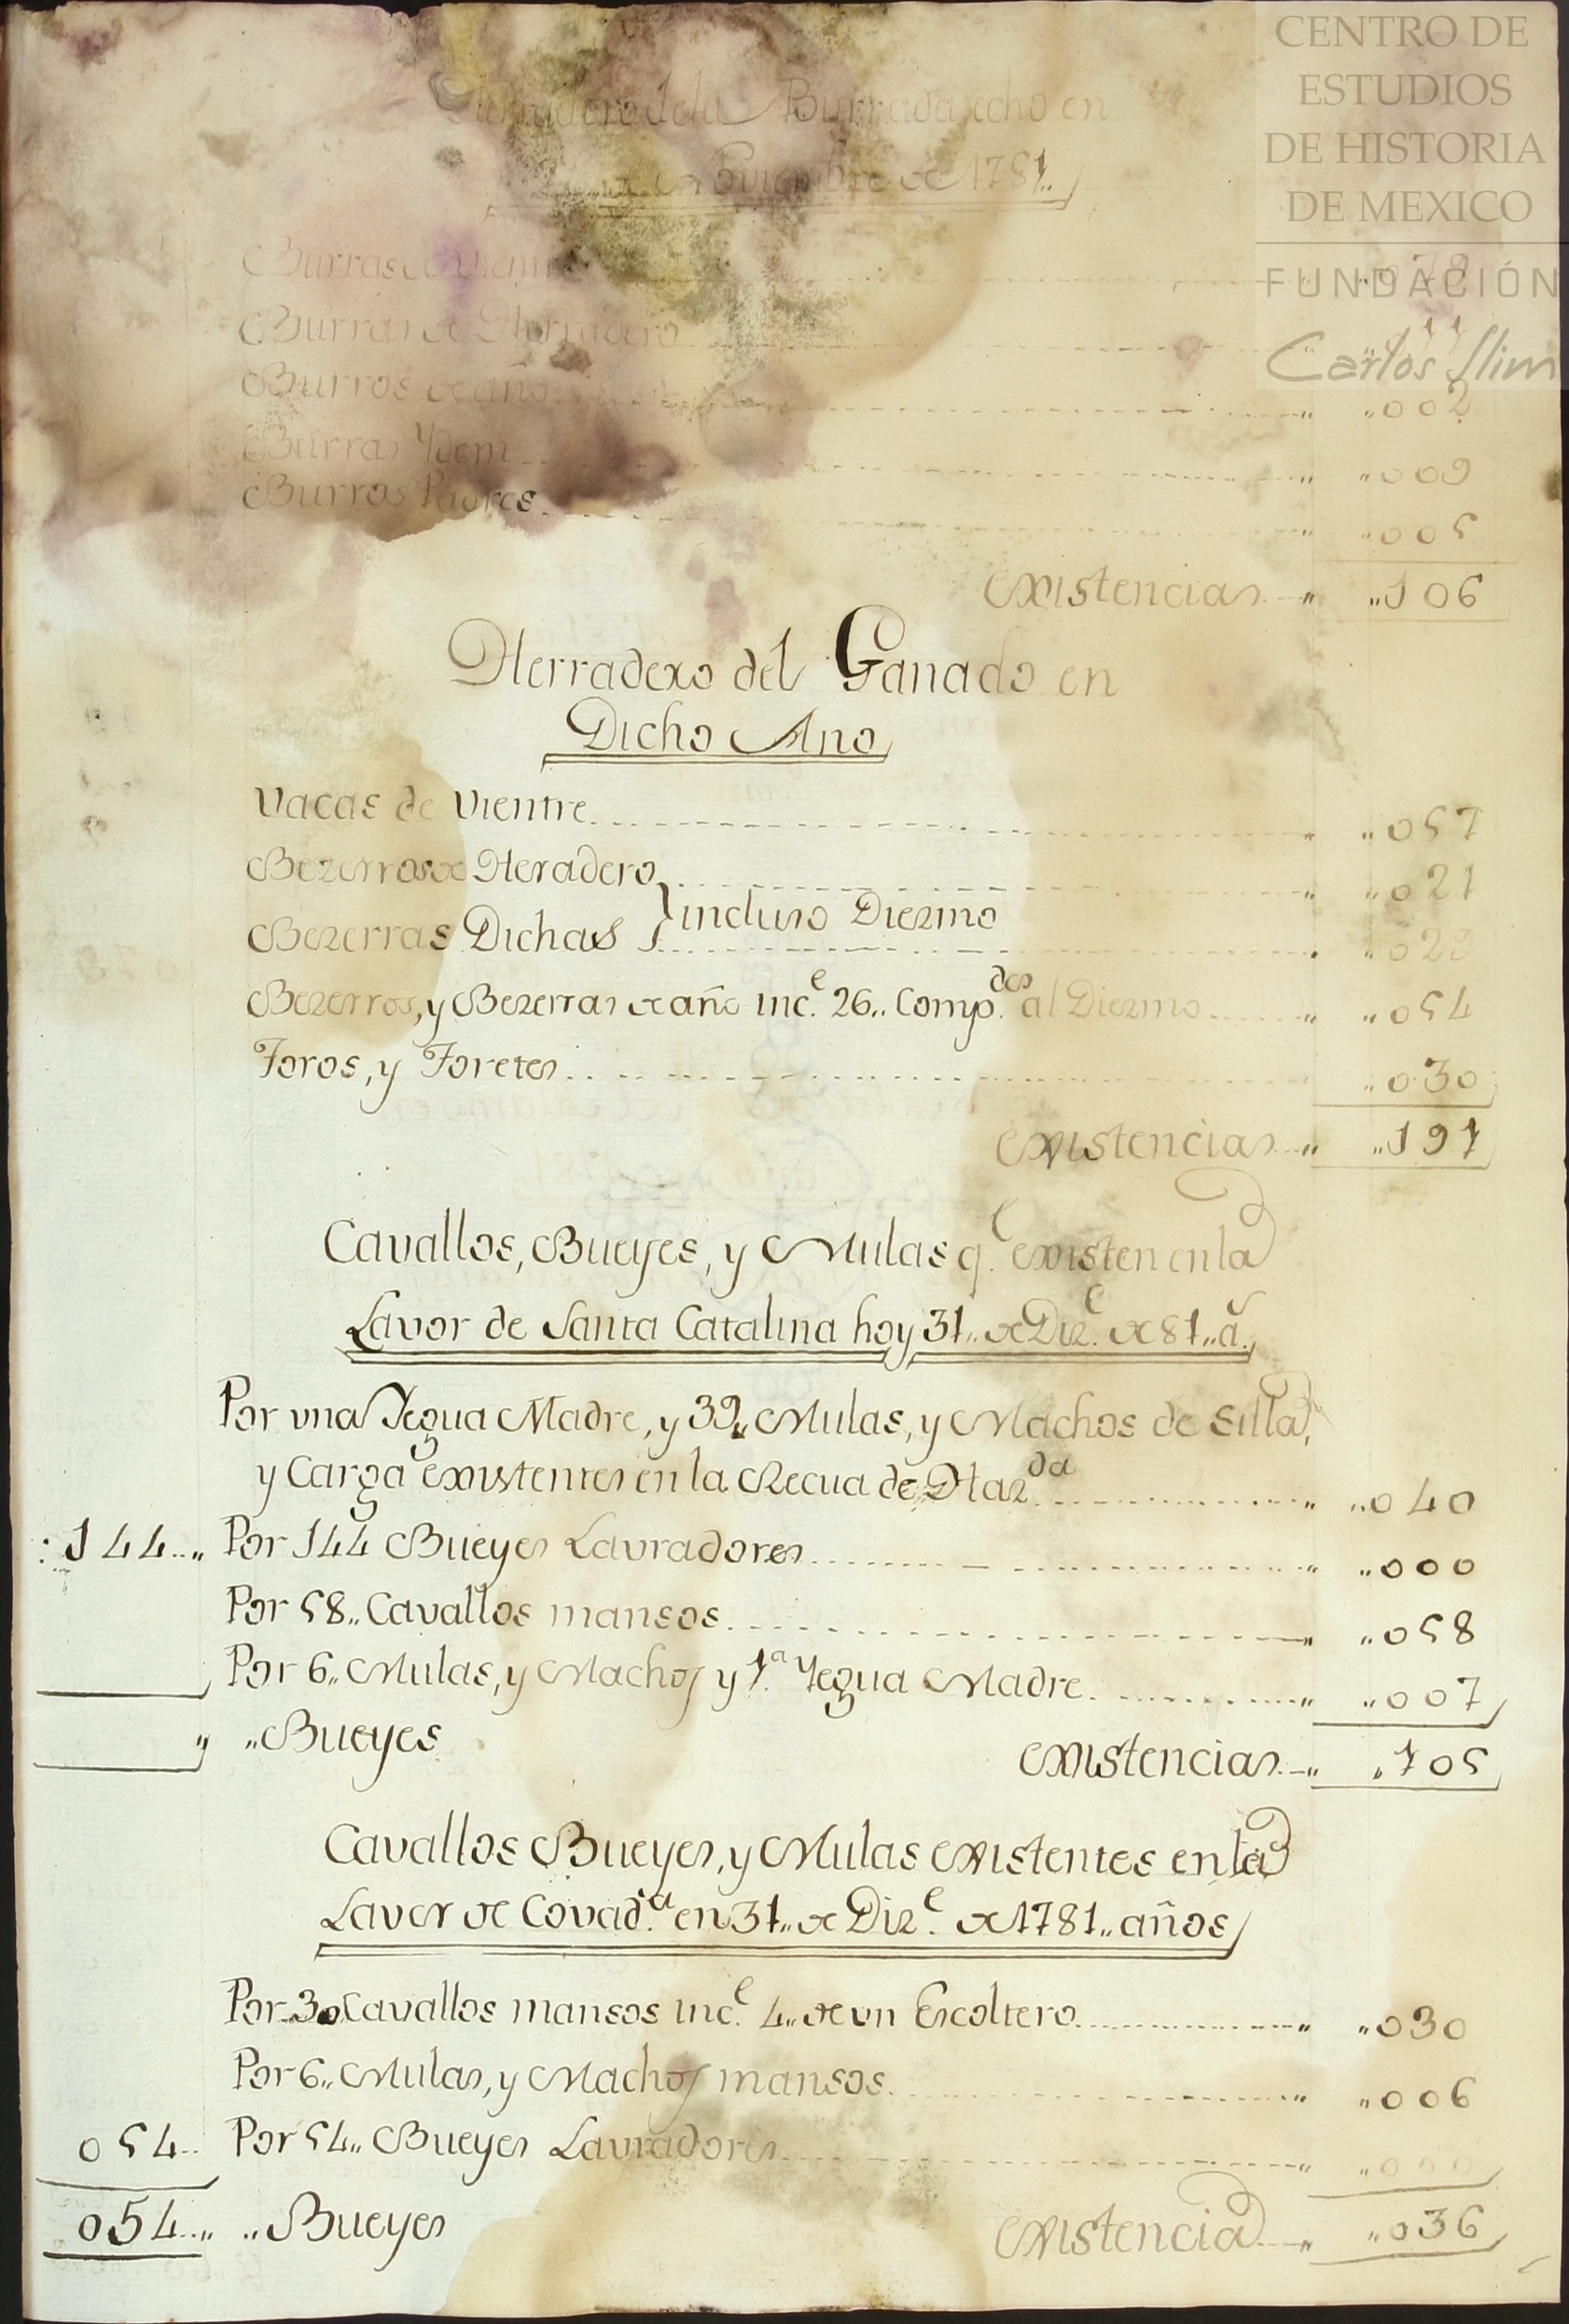 CENTRO DE
ESTUDIOS
DE HISTORIA
DE MEXICO
FUNDACIÓN
Carlos Slim
Herradero de la Burrada echo en
Noviembre de 1781..
Burras de Vientre
Burras de Herradero .. 11
Burros de año .. ..002
Burras Ydem .. ..009
Burros Padres .. ..005
existencias .. ..106
Herradero del Ganado en
Dicho Ano
Vacas de Vientre .. ..057
Bezerros de Heradero .. ..021
} incluso Diezmo
Bezerras Dichas .. ..029
Bezerros, y Bezerras de año inc.e 26.. Comp.dos al Diezmo .. ..054
Toros, y Toretes .. ..030
existencias .. ..191
Cavallos, Bueyes, y Mulas q.e existen en la
Lavor de Santa Catalina hoy 31.. de Diz.e de 81.. a.s
Por una Yegua Madre, y 39.. Mulas, y Machos de Silla,
y Carga existentes en la Recua de Haz.da .. ..040
:144.. Por 144 Bueyes Lavradores .. ..000
Por 58.. Cavallos mansos .. ..058
Por 6.. Mulas, y Machos y 1.a Yegua Madre .. ..007
.. ..Bueyes
existencias .. ..105
Cavallos Bueyes, y Mulas existentes en la
Lavor de Covad.a en 31.. de Diz.e de 1781.. años
Por 30 Cavallos mansos inc.e 4.. de un Escoltero .. ..030
Por 6.. Mulas, y Machos mansos .. ..006
054.. Por 54.. Bueyes Lavradores .. ..000
054.. ..Bueyes
existencia .. ..036